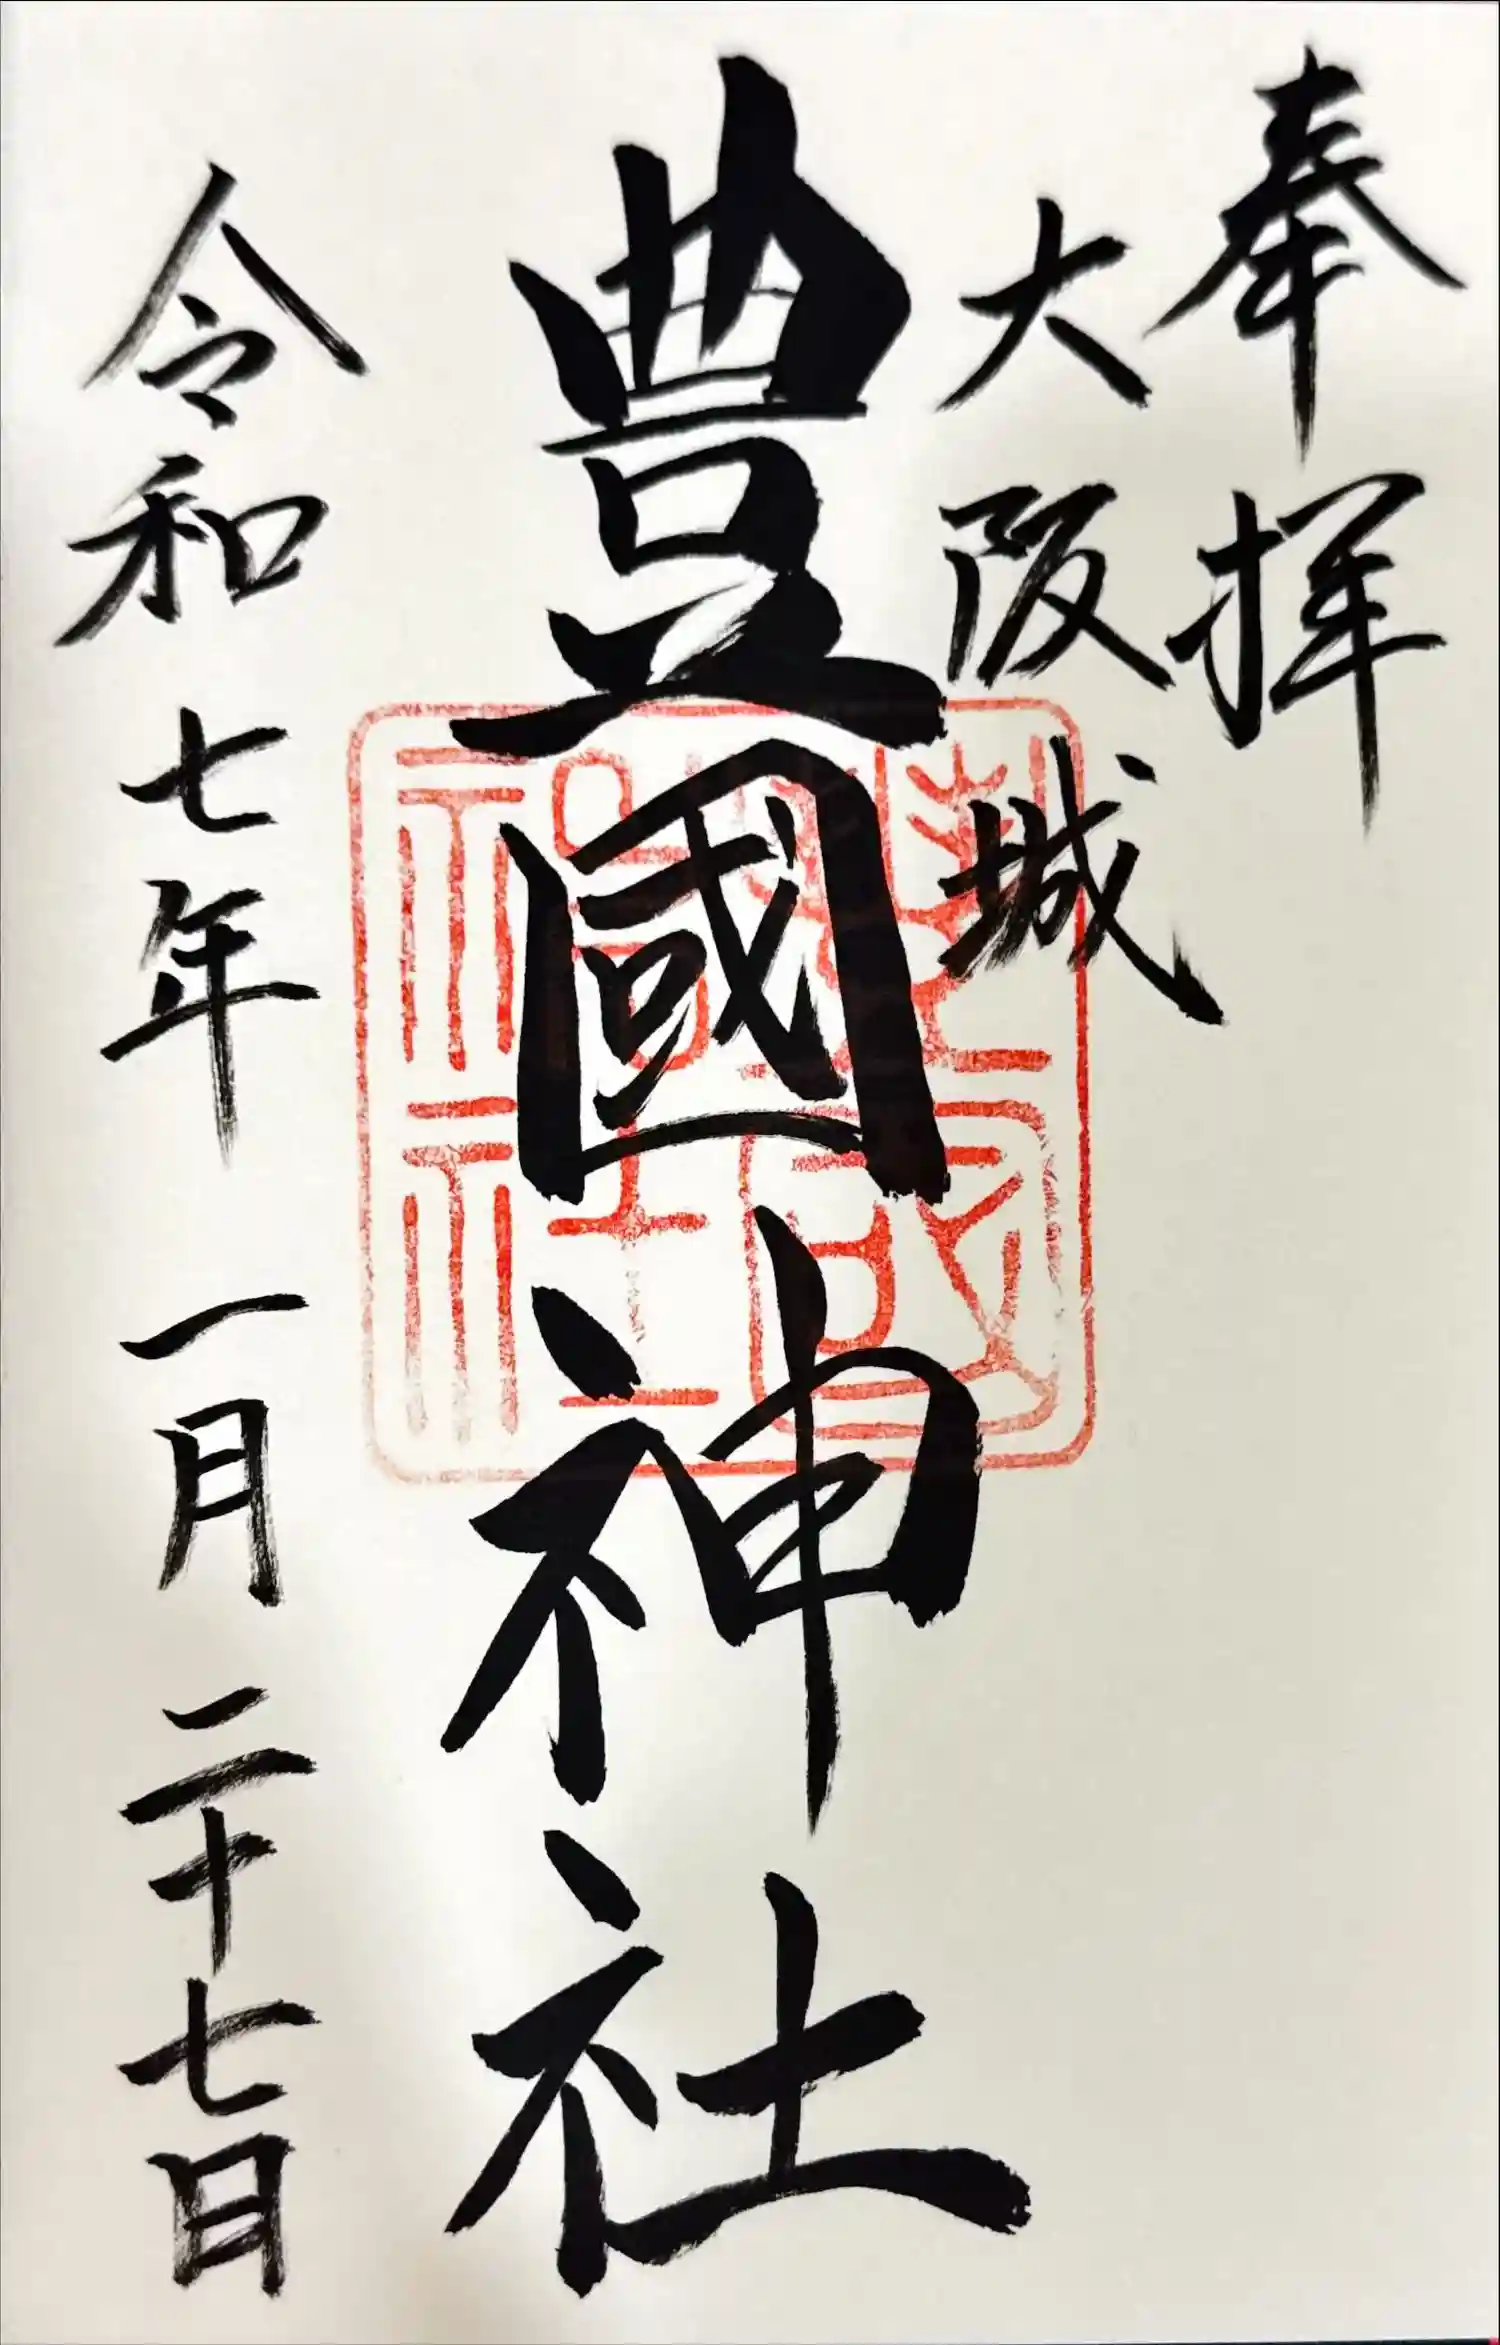 奉拝
大阪城
豊國神社
令和七年一月二十七日
豊國神社